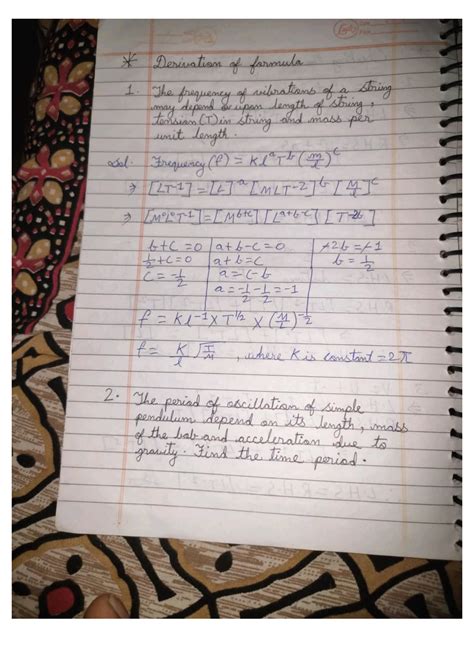 * Derivation of formula
1. The frequency of vibrations of a string
may depend upon length of string,
tension (T) in string and mass per
unit length.
Sol. Frequency (f) = K l^a T^b (m/l)^c
⇒ [LT-1] = [L]^a [MLT-2]^b [M/L]^c
⇒ [M⁰L⁰T-1] = [M^b+c] [L^a+b-c] [T^-2b]
b+c=0 | a+b-c=0 | -2b=-1
1/2+c=0 | a+b=c | b=1/2
c=-1/2 | a=c-b
a=-1/2-1/2=-1
f = K l^-1 × T^1/2 × (M/L)^-1/2
f = K/l √T/M, where K is constant = 2π
2. The period of oscillation of simple
pendulum depend on its length, mass
of the bob and acceleration due to
gravity. Find the time period.